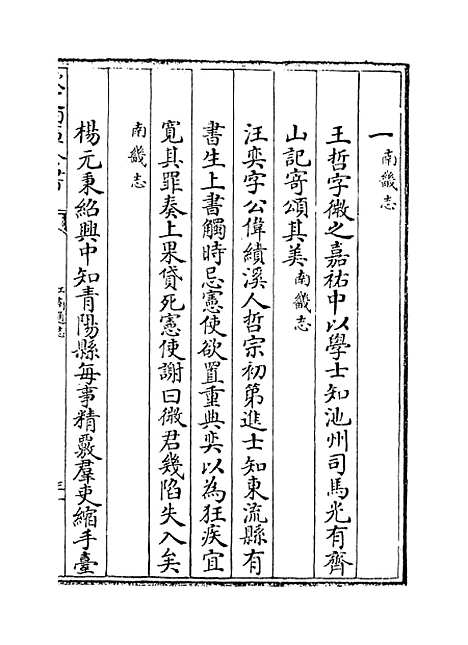 一南畿志
王哲字微之嘉祐中以學士知池州司馬光有齊
山記寄頌其美南畿志
汪奕字公偉績溪人哲宗初第進士知東流縣有
書生上書觸時忌憲使欲置重典奕以為狂疾宜
寛其罪奏上果貸死憲使謝曰微君幾陷失入矣
南畿志
楊元秉紹興中知青陽縣每事精覈羣吏縮手臺